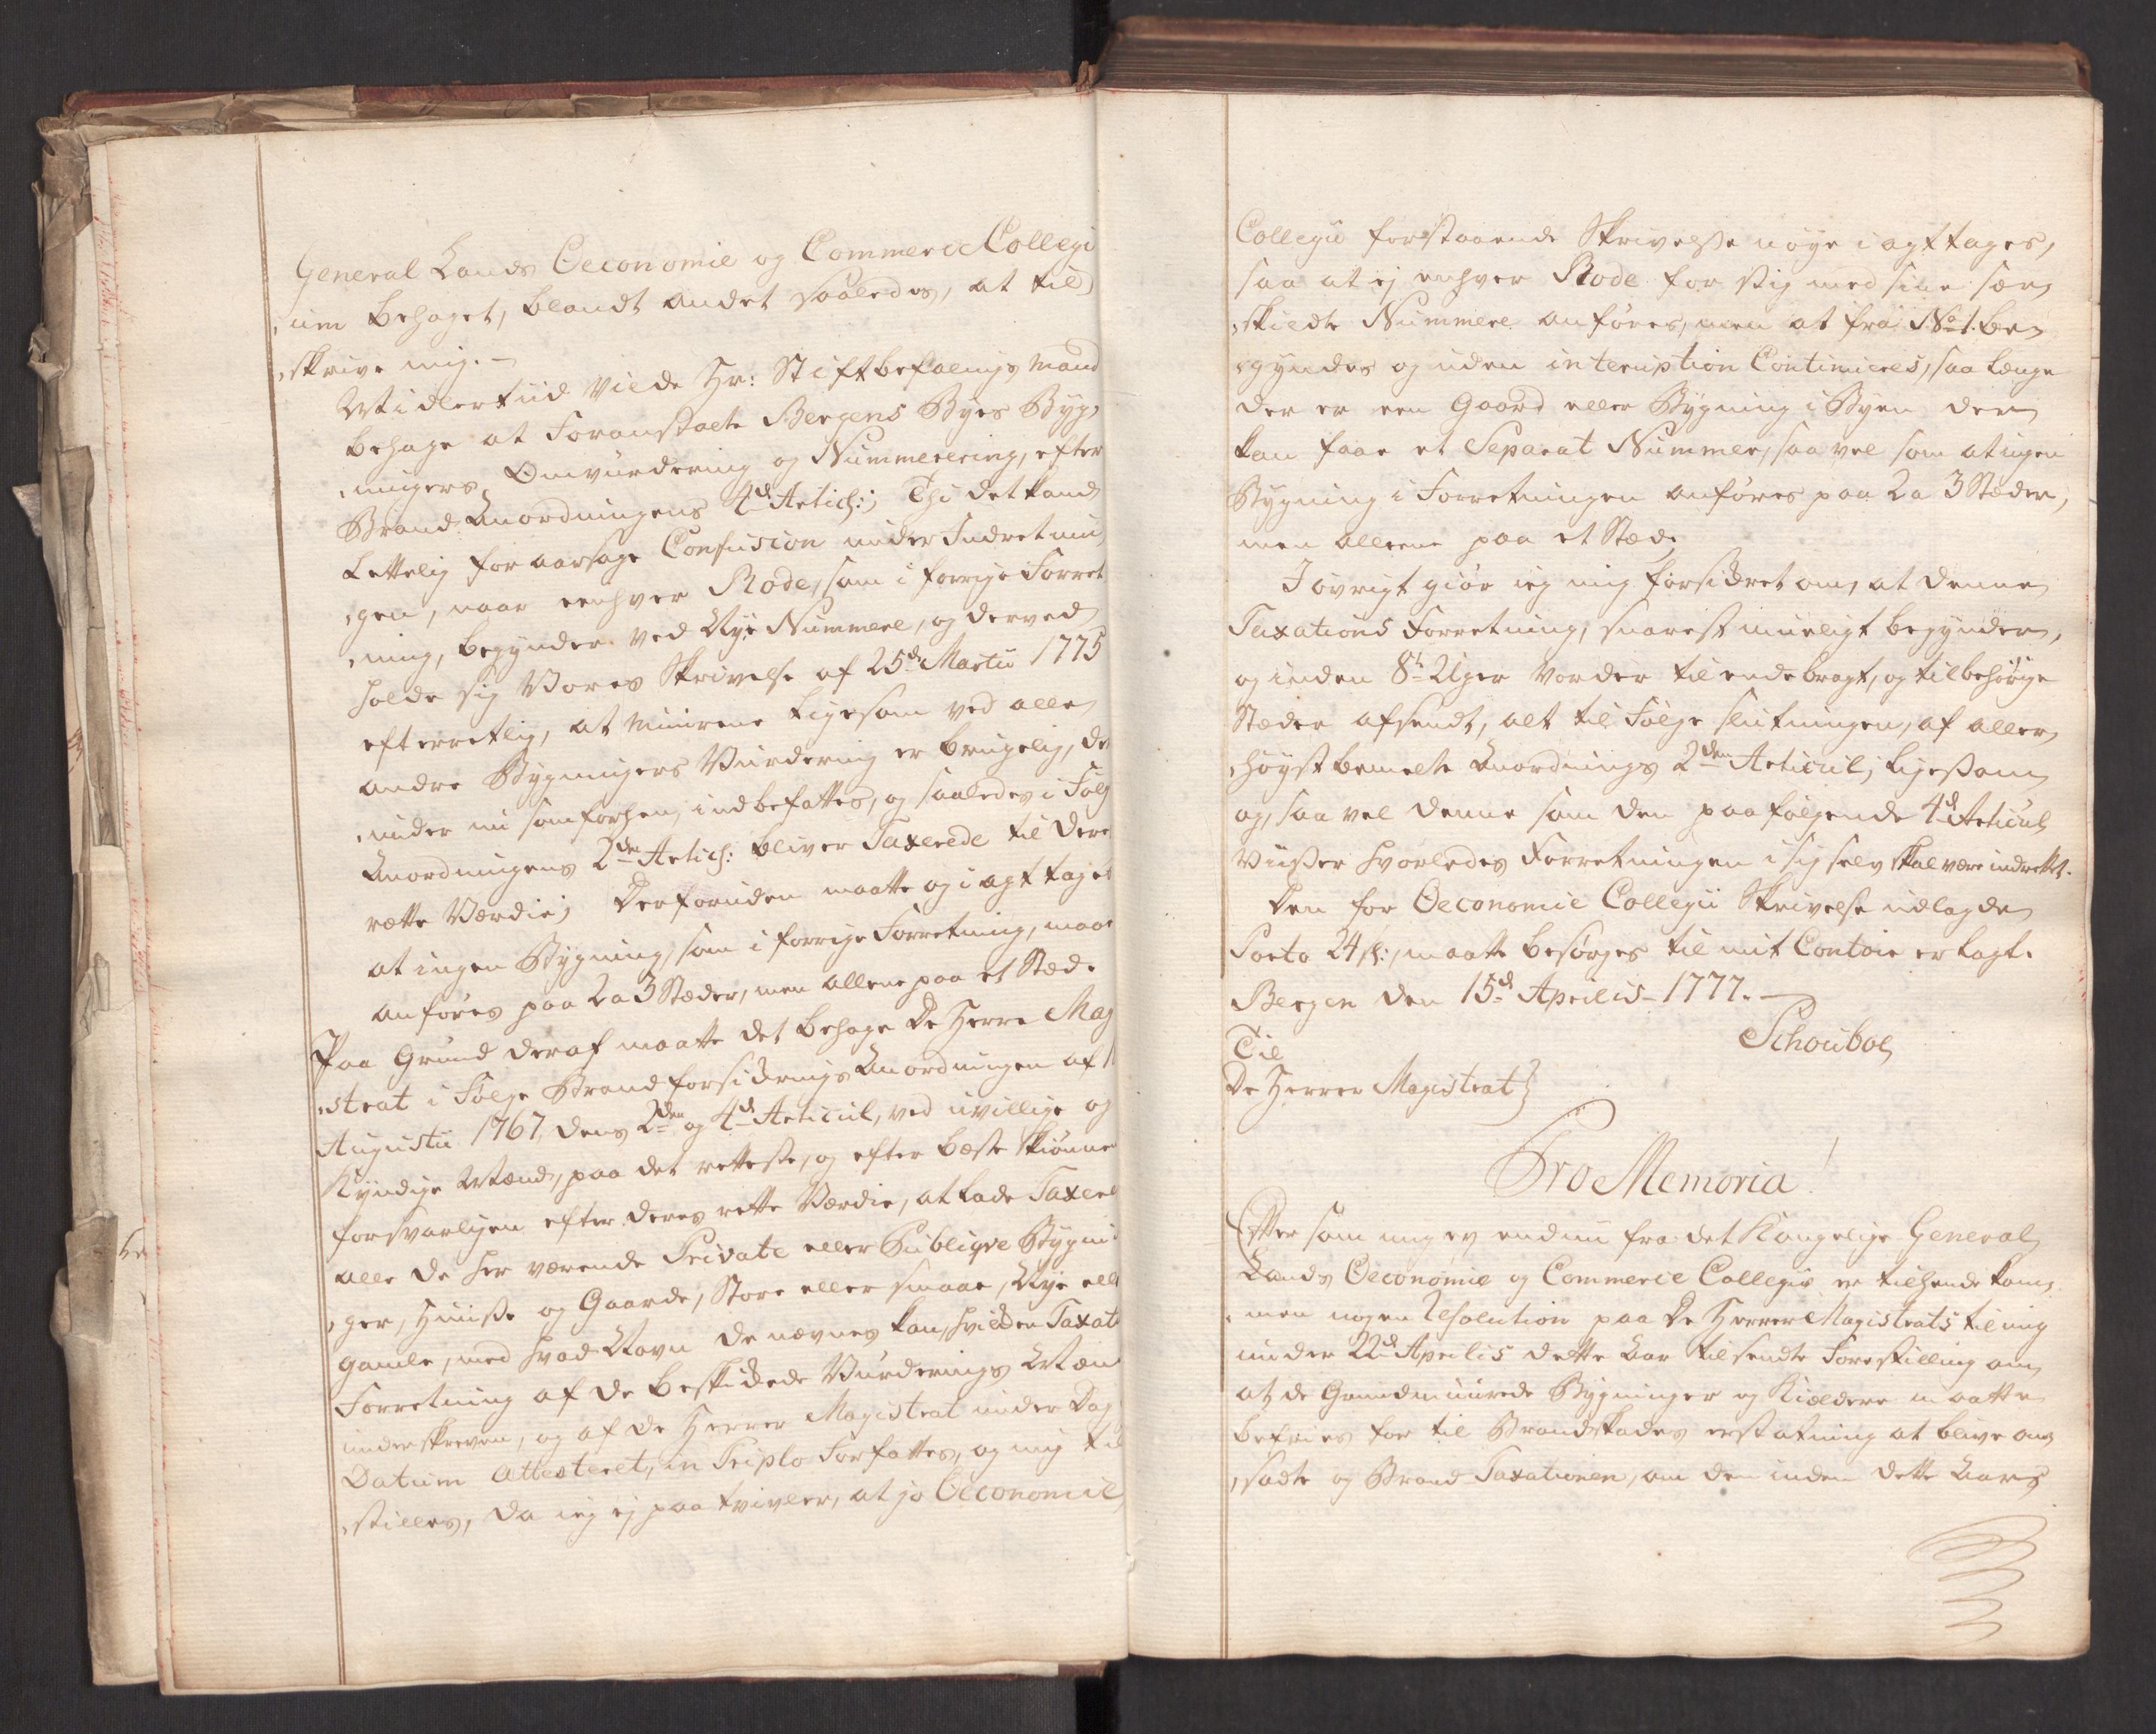 General Lands Oeconomie og Commerce Collegi
um behaget, blandt andet saaledes, at til
skrive mig. –
Midlertiid vilde Hr: Stiftbefalings Mand
behage at foranstalte Bergens Byes Byg
ningers Omvurdering og Nummerering, efter
Brand Anordningens 4d Artich:; Thi det kand
lettelig foraarsage Confusion under Indretnin
gen, naar eenhver Rode, som i forrige Forret
ning, begynder ved Nye Nummere, og derved
holde sig Vores Skrivelse af 25d Martii 1775
efterretlig, at Muurene ligesom ved alle
andre Bygningers Vurdering er brugelig, der
under nu som forhen, indbefattes, og saaledes i Følg
Anordningens 2den Artich: bliver Taxerede til dere
rette Værdie; Derforuden maatte og i agt tages
at ingen Bygning, som i forrige Forretning, maae
anføres paa 2 a 3 Stæder, men allene paa et Stæd.
Paa Grund deraf maatte det behage De Herre Mag
strat i Følge Brandforsikrings Anordningen af 1
Augustii 1767, dens 2den og 4d Articul, ved uvillige og
Kyndige Mænd, paa det retteste, og efter beste skiønne
forsvarligen efter deres rette Værdie, at lade Taxere
alle de her værende Private eller Publiqve Bygni
ger, Huuse og Gaarde, Store eller smaae, Nye elle
gamle, med hvad Navn de nævnes kan, hvilken Taxati
Forretning af de beskikkede Vurderings Mæn
underskreven, og af De Herrer Magistrat under Dag
Datum Attesteret, in Triplo forfattes, og mig til
stilles, da ieg ej paatvivler, at jo Oeconomie
Collegii forstaaende Skrivelse nøye i agt tages,
saa at ej enhver Rode for sig med sine sær
skildte Nummere anføres, men at fra No 1. be
gyndes og uden interuption Continueres, saa længe
der er een Gaard eller Bygning i Byen der
kan faae et Separat Nummer, saavel som at ingen
Bygning i Forretningen anføres paa 2 a 3 Stæder,
men alleene paa et Stæd.
I øvrigt giør ieg mig forsikret om, at denne
Taxations Forretning, snarest mueligt begynder,
og inden 8te Uger vorder til ende bragt, og til behørige
Stæder afsendt, alt til Følge slutningen, af aller
høyst bemelte Anordnings 2den Articul, ligesom
og, saavel denne som den paafølgende 4d Articul
viiser hvorledes Forretningen i sig selv skal være indrettet.
Den for Oeconomie Collegii Skrivelse udlagde
Porto 24 s:, maatte besørges til mit Contoir erlagt.
Bergen den 15d Aprilis 1777. –
Schouboe
Til
De Herrer Magistrat
Pro Memoria!
Efter som mig ey endnu fra det Kongelige General
Lands Oeconomie og Commerce Collegio er tilhende kom
men nogen Resolution paa De Herrer Magistrats til mig
under 22d Aprilis dette Aar tilsendte Forestilling om
at de Grundmuurede Bygninger og Kieldere maatte
befries for til Brandskades erstatning at blive an
sadte og Brand Taxationen, om den inden dette Aars